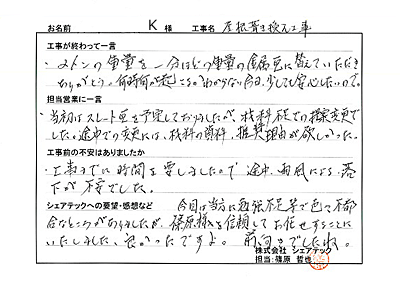 お名前 K 様 工事名 屋根葺き換え工事
工事が終わって一言
・2トンの重量を一分ほどの重量の金属瓦に替えていただき
ありがとう。何時何が起こるかわからない今日、少しでも安心したいので。
担当営業に一言
当初はスレート瓦を予定しておりましたが、材料不足での提案変更で
した。途中での変更には、材料の資料、推奨理由が欲しかった。
工事前の不安はありましたか
・工事までに時間を要しましたので途中、雨風による落
下が不安でした。
シェアテックへの要望・感想など 今回は当方に勉強不足等で色々不都
合なところがありましたが、篠原様を信頼してお任せすることに
いたしました。良かったですよ。前向きでしたね。
株式会社 シェアテック
担当:篠原 哲也